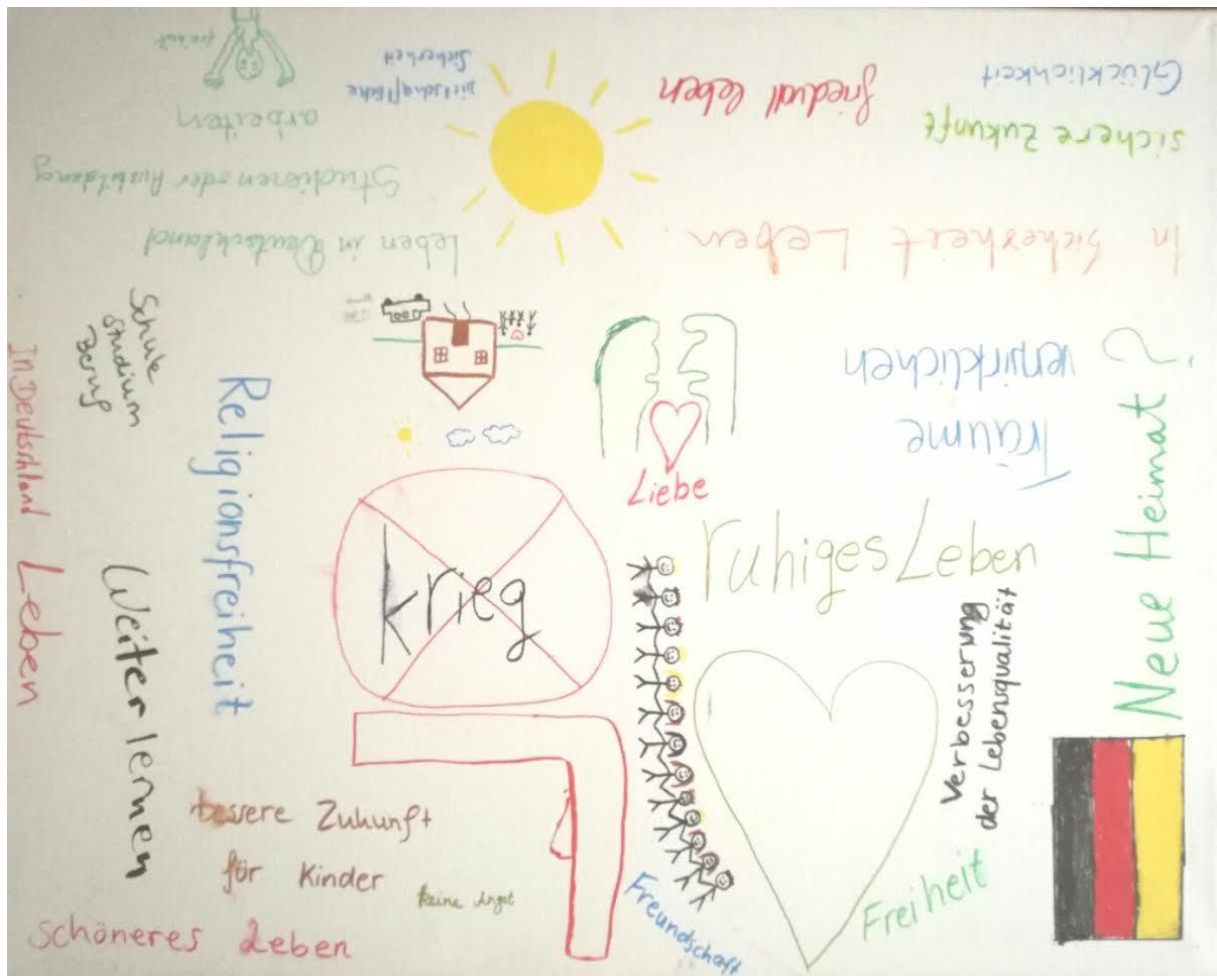 freiheit
arbeiten
wirtschaftliche
Sicherheit
friedvoll leben
Glücklichkeit
sichere Zukunft
Studieren oder Ausbildung
Leben in Deutschland
In Sicherheit Leben
Schule
Studium
Beruf
In Deutschland Leben
Religionsfreiheit
Weiter lernen
Träume
verwirklichen
Neue Heimat?
Liebe
krieg
ruhiges Leben
Verbesserung
der Lebensqualität
bessere Zukunft
für Kinder
keine Angst
schöneres Leben
Freundschaft
Freiheit